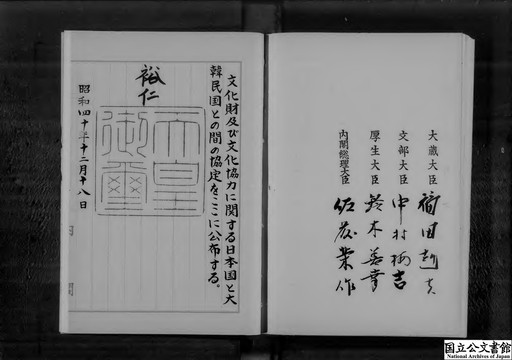 文化財及び文化協力に関する日本国と大
韓民国との間の協定をここに公布する。
裕仁
天皇
御璽
昭和四十年十二月十八日
大蔵大臣 福田赳夫
文部大臣 中村梅吉
厚生大臣 鈴木善幸
内閣総理大臣 佐藤榮作
国立公文書館
National Archives of Japan